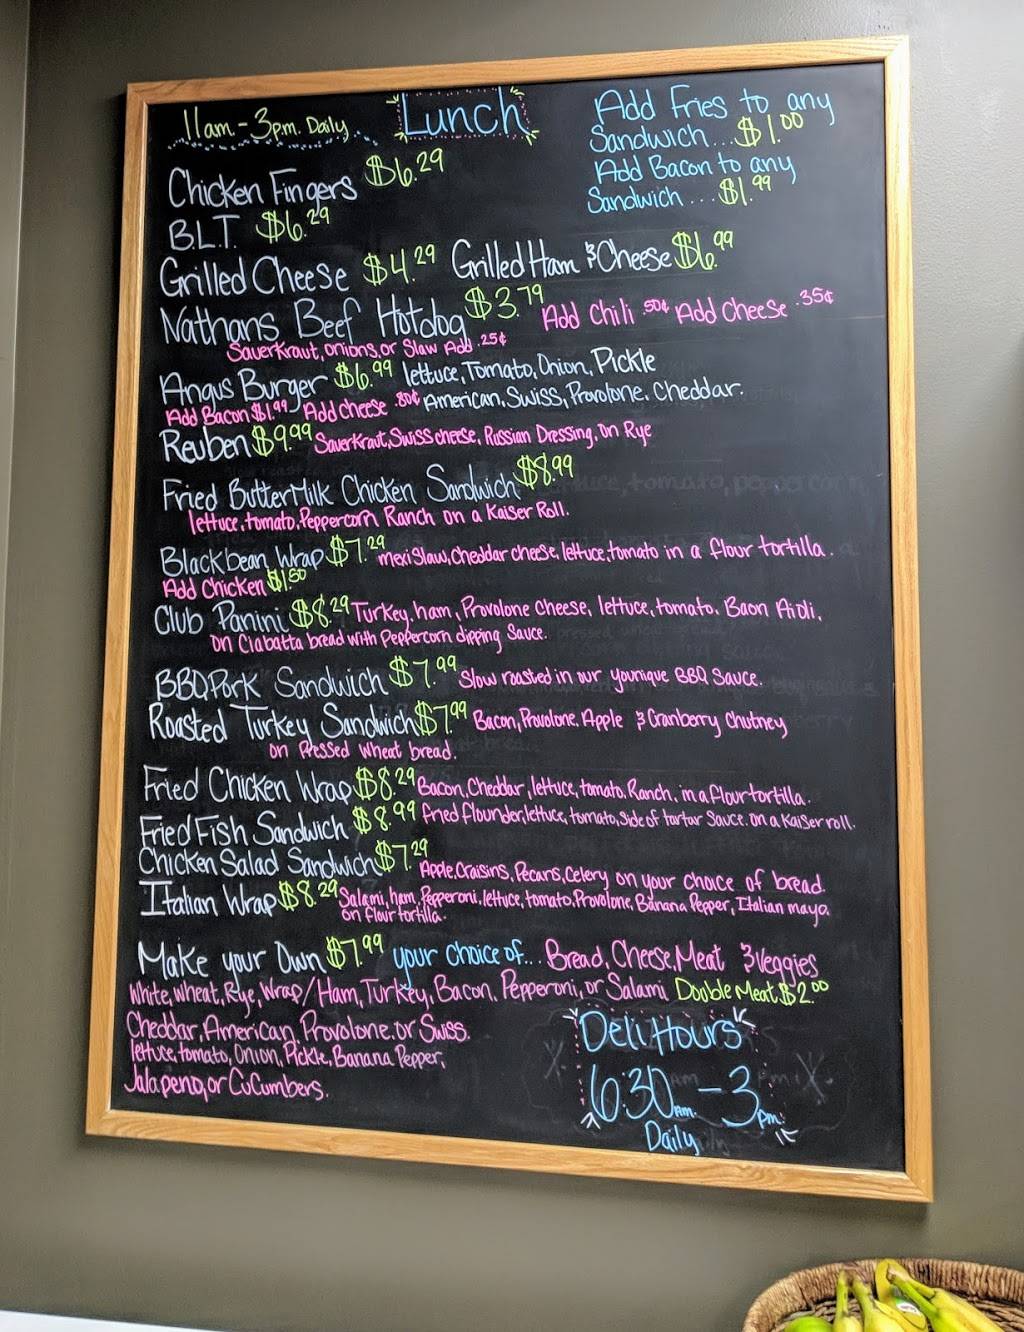 11am-3pm. Daily
Lunch
Add Fries to any
Sandwich...$1.00
Add Bacon to any
Sandwich...$1.99
Chicken Fingers $6.29
B.L.T. $6.29
Grilled Cheese $4.29 Grilled Ham & Cheese $6.99
Nathans Beef Hotdog $3.79 Add Chili .50¢ Add Cheese .35¢
Sauerkraut, onions, or Slaw Add .25¢
Angus Burger $6.99 lettuce, Tomato, Onion, Pickle
Add Bacon $1.99 Add cheese .80¢ American, Swiss, Provolone. Cheddar.
Reuben $9.99 Sauerkraut, Swiss cheese, Russian Dressing, on Rye
Fried ButterMilk Chicken Sandwich $8.99
lettuce, tomato, Peppercorn Ranch on a Kaiser Roll.
Blackbean Wrap $7.29 mexi Slaw, Cheddar cheese, lettuce, tomato in a flour tortilla.
Add Chicken $1.50
Club Panini $8.29 Turkey, ham, Provolone Cheese, lettuce, tomato. Baon Aioli,
on Ciabatta bread with Peppercorn dipping Sauce.
BBQ Pork Sandwich $7.99 Slow roasted in our younique BBQ Sauce.
Roasted Turkey Sandwich $7.99 Bacon, Provolone, Apple & Cranberry Chutney
on Pressed Wheat bread.
Fried Chicken Wrap $8.29 Bacon, Cheddar, lettuce, tomato, Ranch. in a flour tortilla.
Fried Fish Sandwich $8.99 Fried flounder, lettuce, tomato, Side of tartar Sauce. on a Kaiser roll.
Chicken Salad Sandwich $7.29 Apple, Craisins, Pecans, Celery on your choice of bread.
Italian Wrap $8.29 Salami, ham, Pepperoni, lettuce, tomato, Provolone, Banana Pepper, Italian mayo.
on flour tortilla.
Make your Own $7.99 your choice of... Bread, Cheese, Meat & Veggies
White, Wheat, Rye, Wrap/Ham, Turkey, Bacon, Pepperoni, or Salami Double Meat $2.00
Cheddar, American, Provolone, or Swiss.
lettuce, tomato, Onion, Pickle, Banana Pepper,
Jalapeno, or Cucumbers.
Deli Hours
6:30am. - 3pm.
Daily